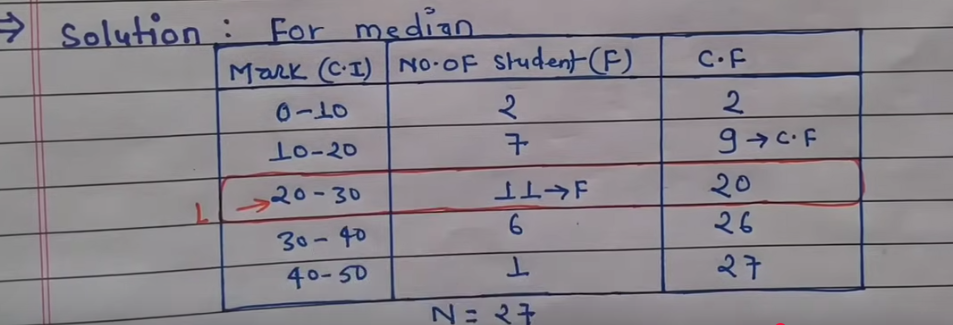 ⇒ Solution : For median
Mark (C.I) No. of student (F) C.F
0-10 2 2
10-20 7 9 → C.F
L → 20-30 11 → F 20
30-40 6 26
40-50 1 27
N = 27